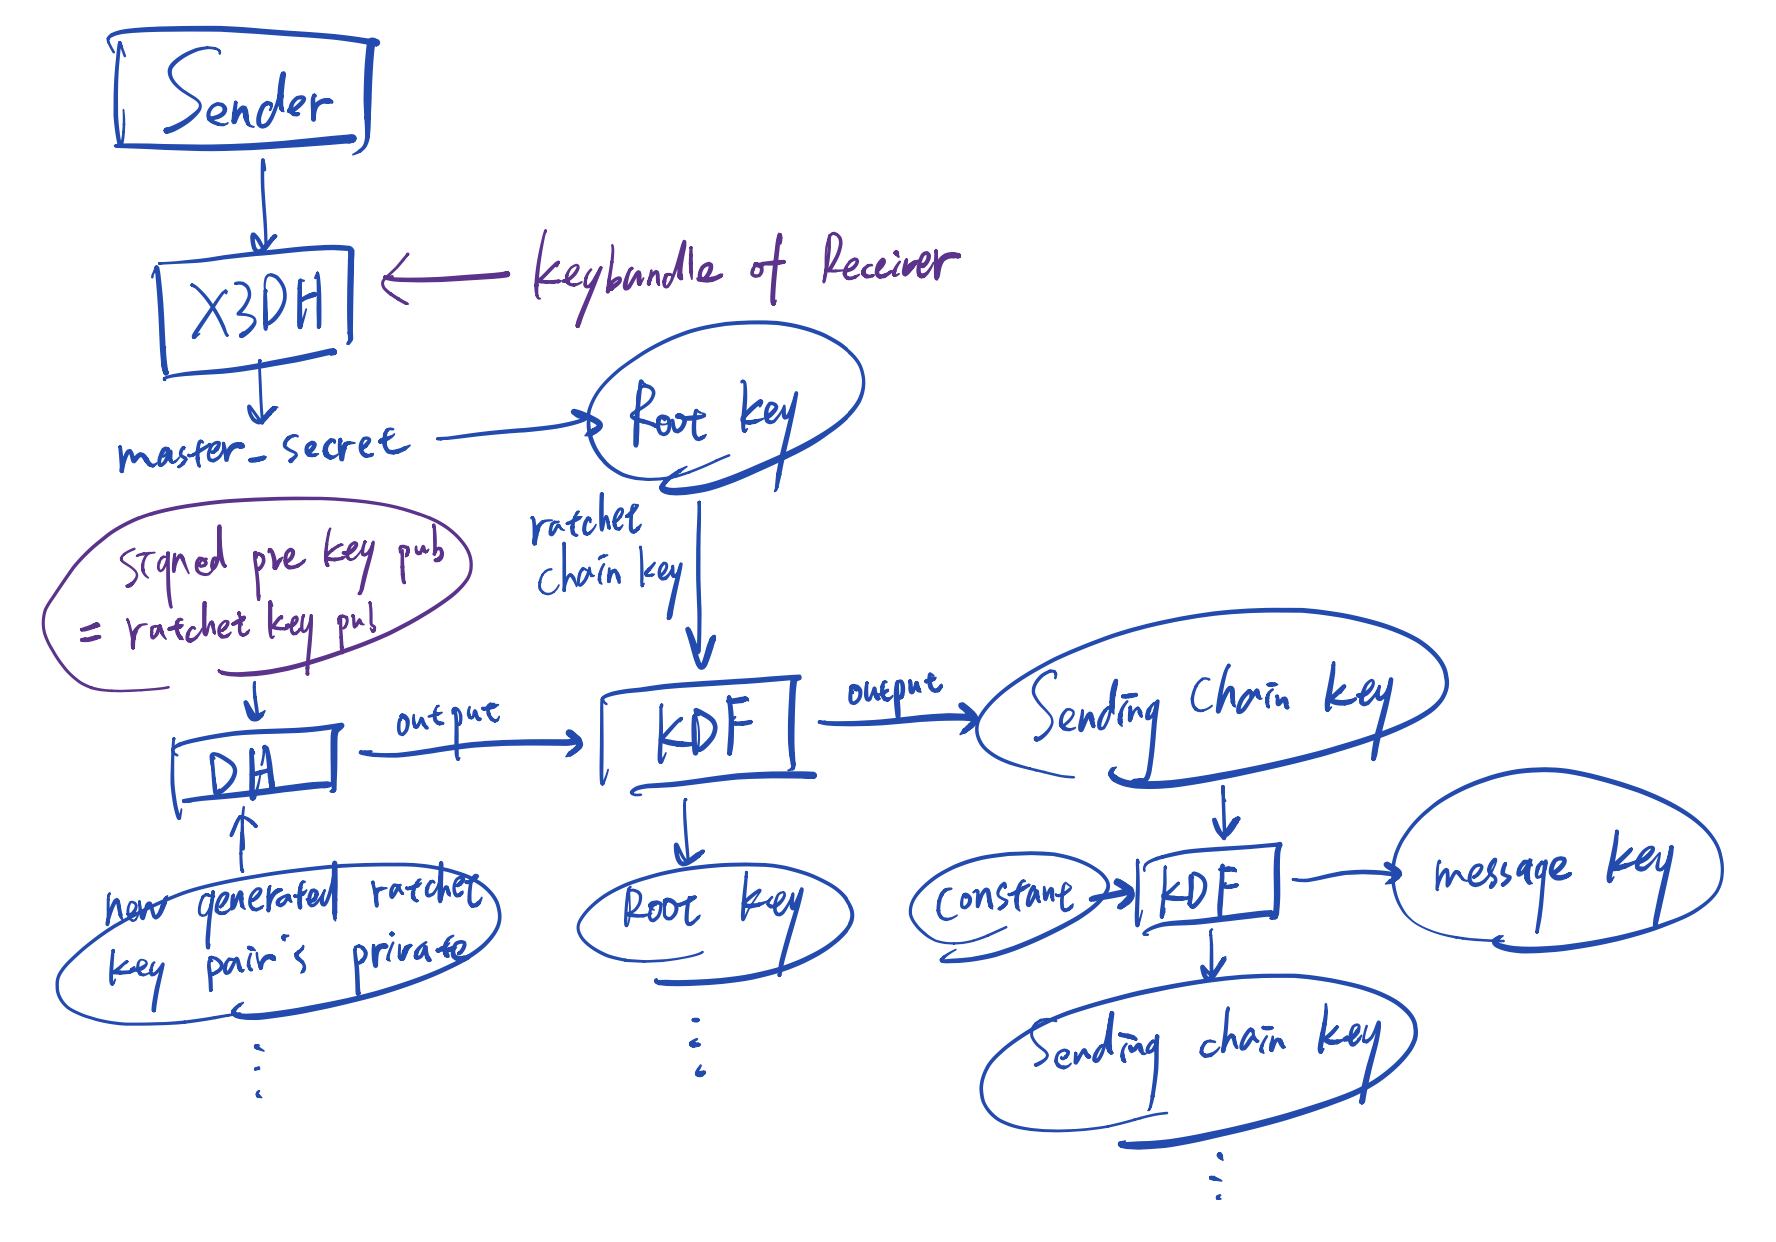 Sender
X3DH
keybandle of Receiver
master_secret
Root key
ratchet
chain key
signed pre key pub
= ratchet key pub
output
DH
KDF
output
Sending Chain key
new generated ratchet
key pair's private
Root key
Constant
KDF
message key
Sending chain key